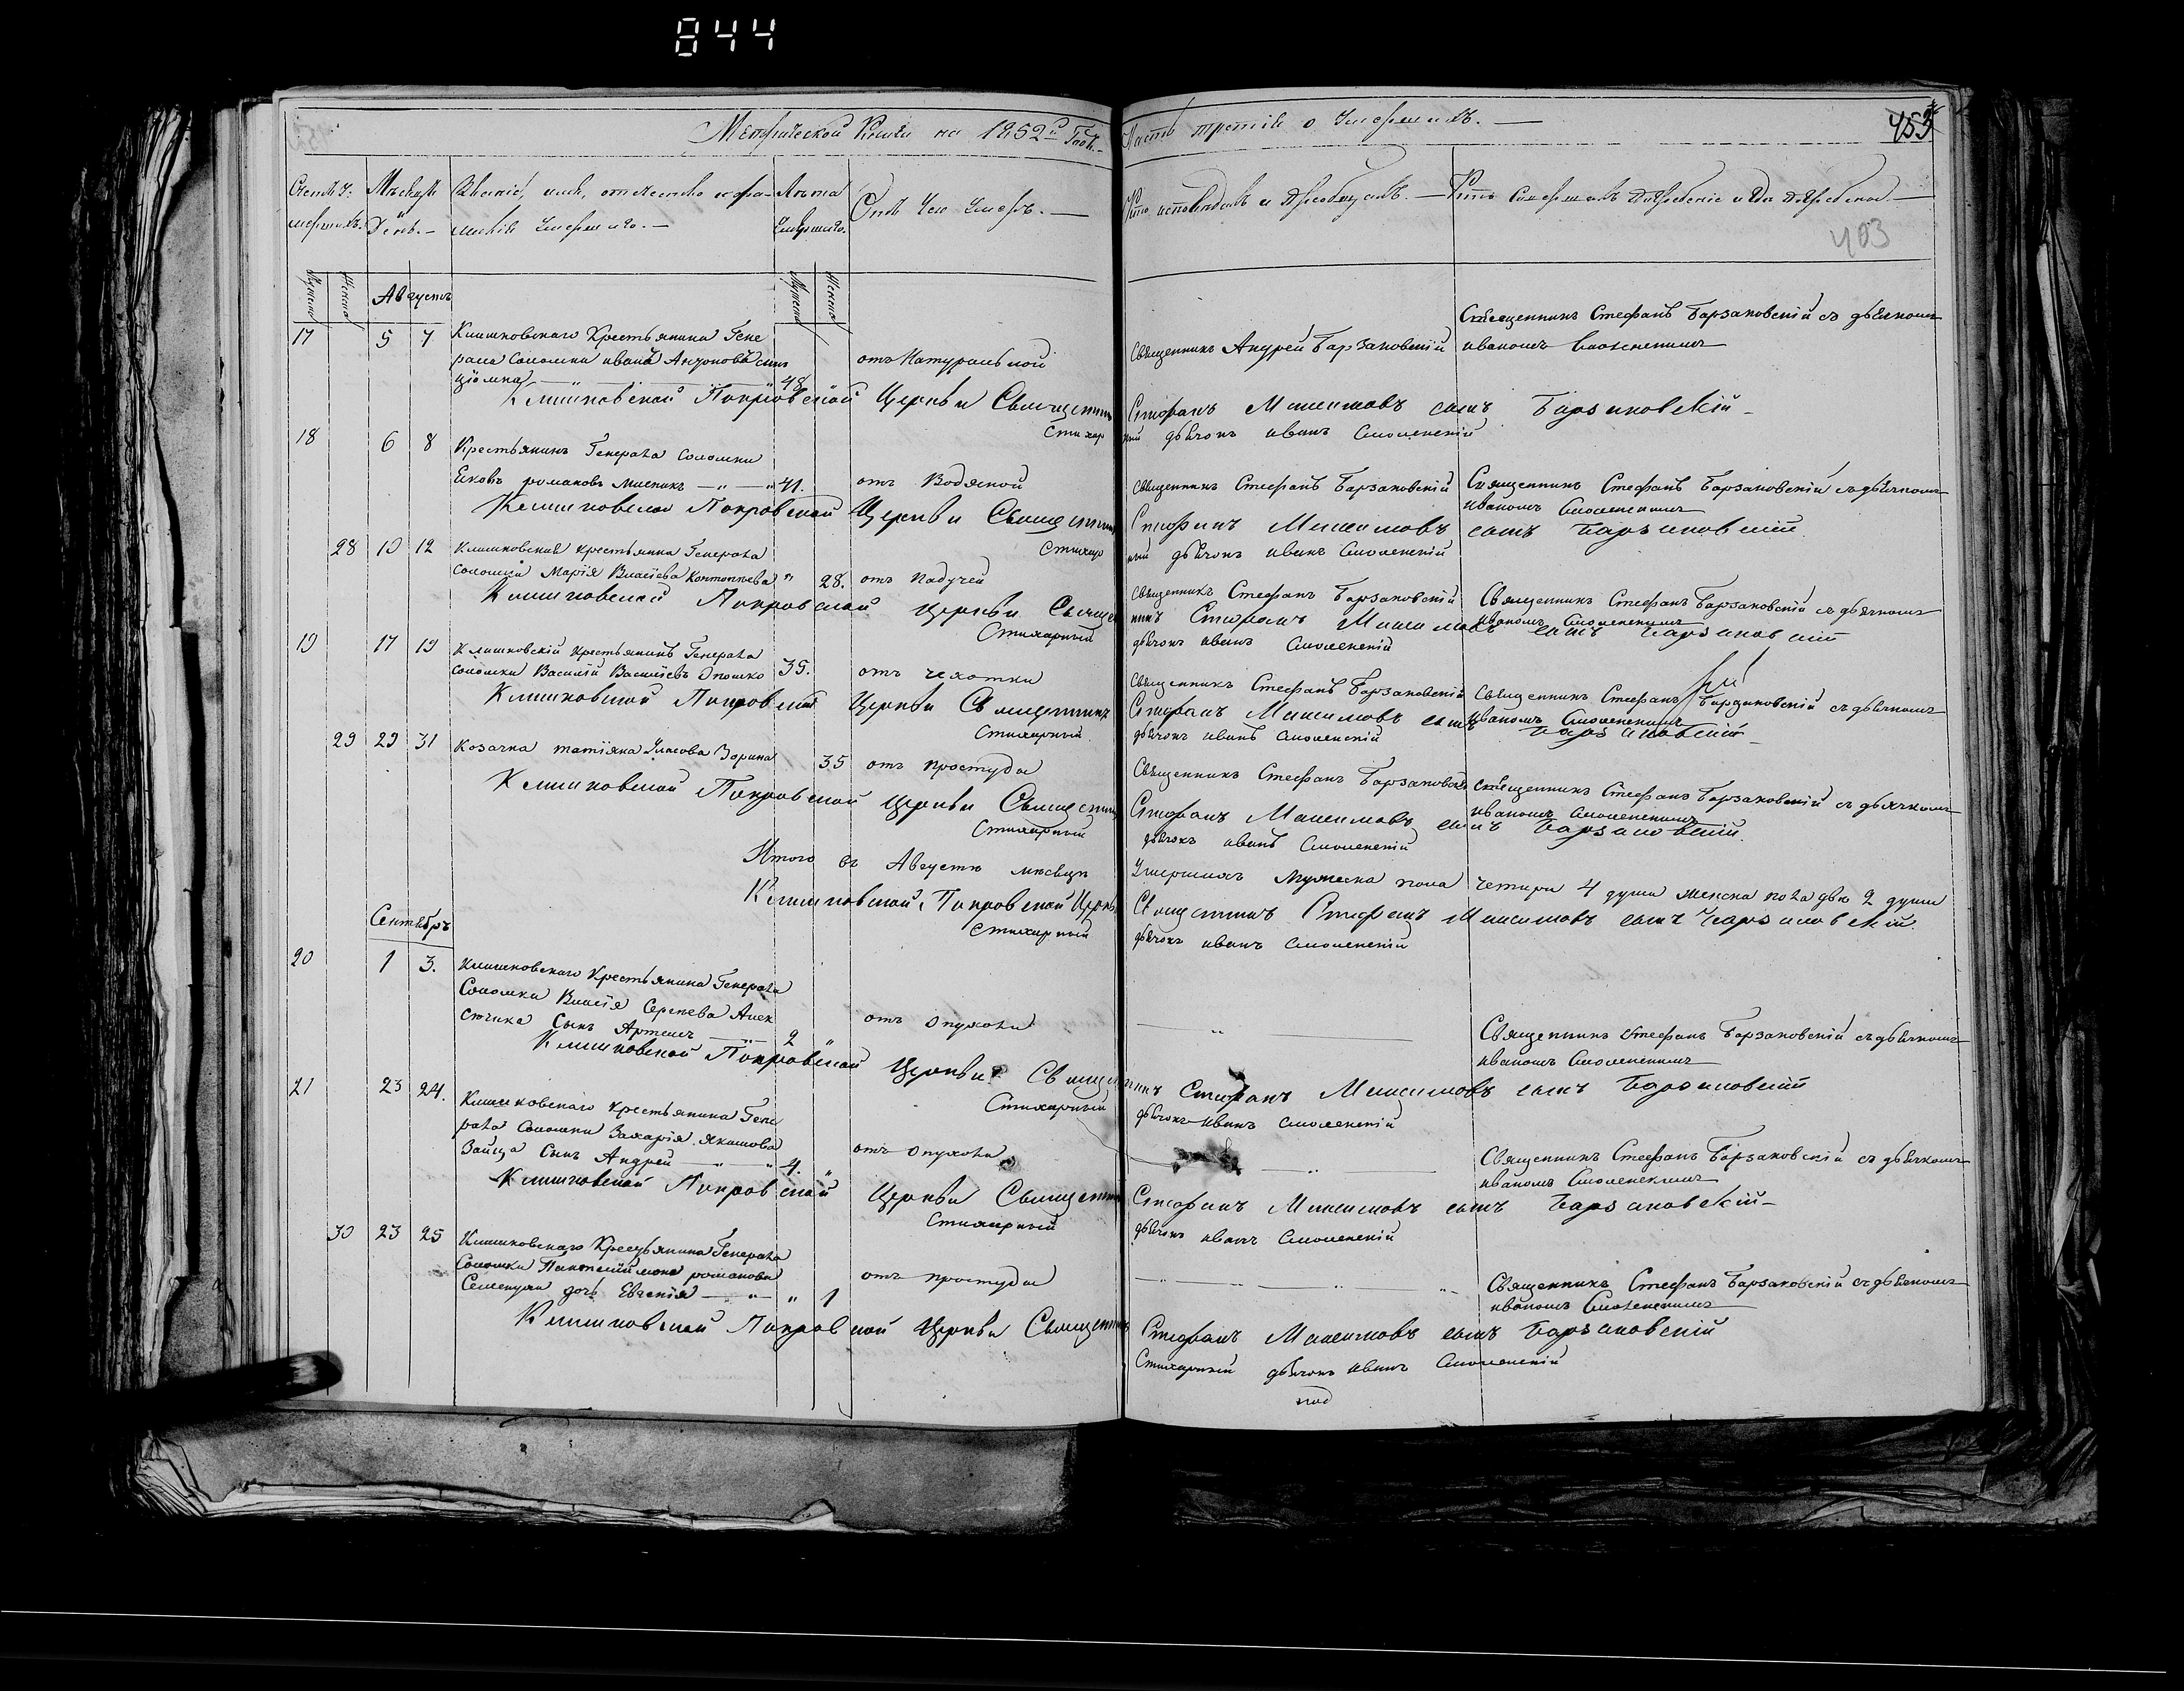 844
Метрической Книги на 1852й Годъ. Часть третія о Умершихъ.
453
403
Счетъ у-
мершихъ.
Мѣсяцъ и
День.
Званіе, имя, отечество и фа-
милія Умершаго.
Лѣта
Умершаго.
Отъ Чего Умеръ.
Кто исповѣдалъ и Пріобщалъ.
Кто Совершалъ Погребеніе и Где Погребены
Мужска Женска
Мужска Женска
Августъ
17 5 7 Клишковскаго Крестьянина Гене
рала Соломки иванъ Антоновъ сынъ
48
отъ Натуральной
Священникъ Андрей Барзаковскій
Священникъ Стефанъ Барзаковскій съ дьячкомъ
иваномъ Смоленскимъ
Клишковской Покровской Церкви Священникъ Стефанъ Максимовъ сынъ Барзаковскій
Стихарный дьячокъ иванъ Смоленскій
18 6 8 Крестьянинъ Генерала Соломки
Яковъ романовъ 41. отъ Водяной
Священникъ Стефанъ Барзаковскій
Священникъ Стефанъ Барзаковскій съ дьячкомъ
иваномъ Смоленскимъ
Клишковской Покровской Церкви Священникъ Стефанъ Максимовъ сынъ Барзаковскій
Стихарный дьячокъ иванъ Смоленскій
28 10 12 Клишковская крестьянка Генерала
Соломки Марія Власіева 28. отъ Падучей
Священникъ Стефанъ Барзаковскій
Священникъ Стефанъ Барзаковскій съ дьячкомъ
иваномъ Смоленскимъ
Клишковской Покровской Церкви Священникъ Стефанъ Максимовъ сынъ Барзаковскій
Стихарный дьячокъ иванъ Смоленскій
19 17 19 Клишковскій крестьянинъ Генерала
Соломки Василій Василіевъ Опошко 35. отъ чехотки
Священникъ Стефанъ Барзаковскій
Священникъ Стефанъ Барзаковскій съ дьячкомъ
иваномъ Смоленскимъ
Клишковской Покровской Церкви Священникъ Стефанъ Максимовъ сынъ Барзаковскій
Стихарный дьячокъ иванъ Смоленскій
29 29 31 Козачка татіяна Уласова Зорина 35 отъ простуды
Священникъ Стефанъ Барзаковскій
Священникъ Стефанъ Барзаковскій съ дьячкомъ
иваномъ Смоленскимъ
Клишковской Покровской Церкви Священникъ Стефанъ Максимовъ сынъ Барзаковскій
Стихарный дьячокъ иванъ Смоленскій
Итого въ Августѣ мѣсяцѣ Умершихъ Мужеска пола четыри 4 души женска пола двѣ 2 души
Клишковской Покровской Церкви Священникъ Стефанъ Максимовъ сынъ Барзаковскій.
Стихарный дьячокъ иванъ Смоленскій
Сентябръ
20 1 3. Клишковскаго Крестьянина Генерала
Соломки Власія Сергѣева Алек
сючика Сынъ Артемъ 2
отъ опухоли
Священникъ Стефанъ Барзаковскій съ дьячкомъ
иваномъ Смоленскимъ
Клишковской Покровской Церкви Священникъ Стефанъ Максимовъ сынъ Барзаковскій
Стихарный дьячокъ иванъ Смоленскій
21 23 24. Клишковскаго крестьянина Гене
рала Соломки Захарія Якимова
Зайца Сынъ Андрей 4.
отъ опухоли
Священникъ Стефанъ Барзаковскій съ дьячкомъ
иваномъ Смоленскимъ
Клишковской Покровской Церкви Священникъ Стефанъ Максимовъ сынъ Барзаковскій
Стихарный дьячокъ иванъ Смоленскій
30 23 25 Клишковскаго Крестьянина Генерала
Соломки Пантелиймона романова
Семенухи дочь Евгенія 1
отъ простуды
Священникъ Стефанъ Барзаковскій съ дьячкомъ
иваномъ Смоленскимъ
Клишковской Покровской Церкви Священникъ Стефанъ Максимовъ сынъ Барзаковскій
Стихарный дьячокъ иванъ Смоленскій